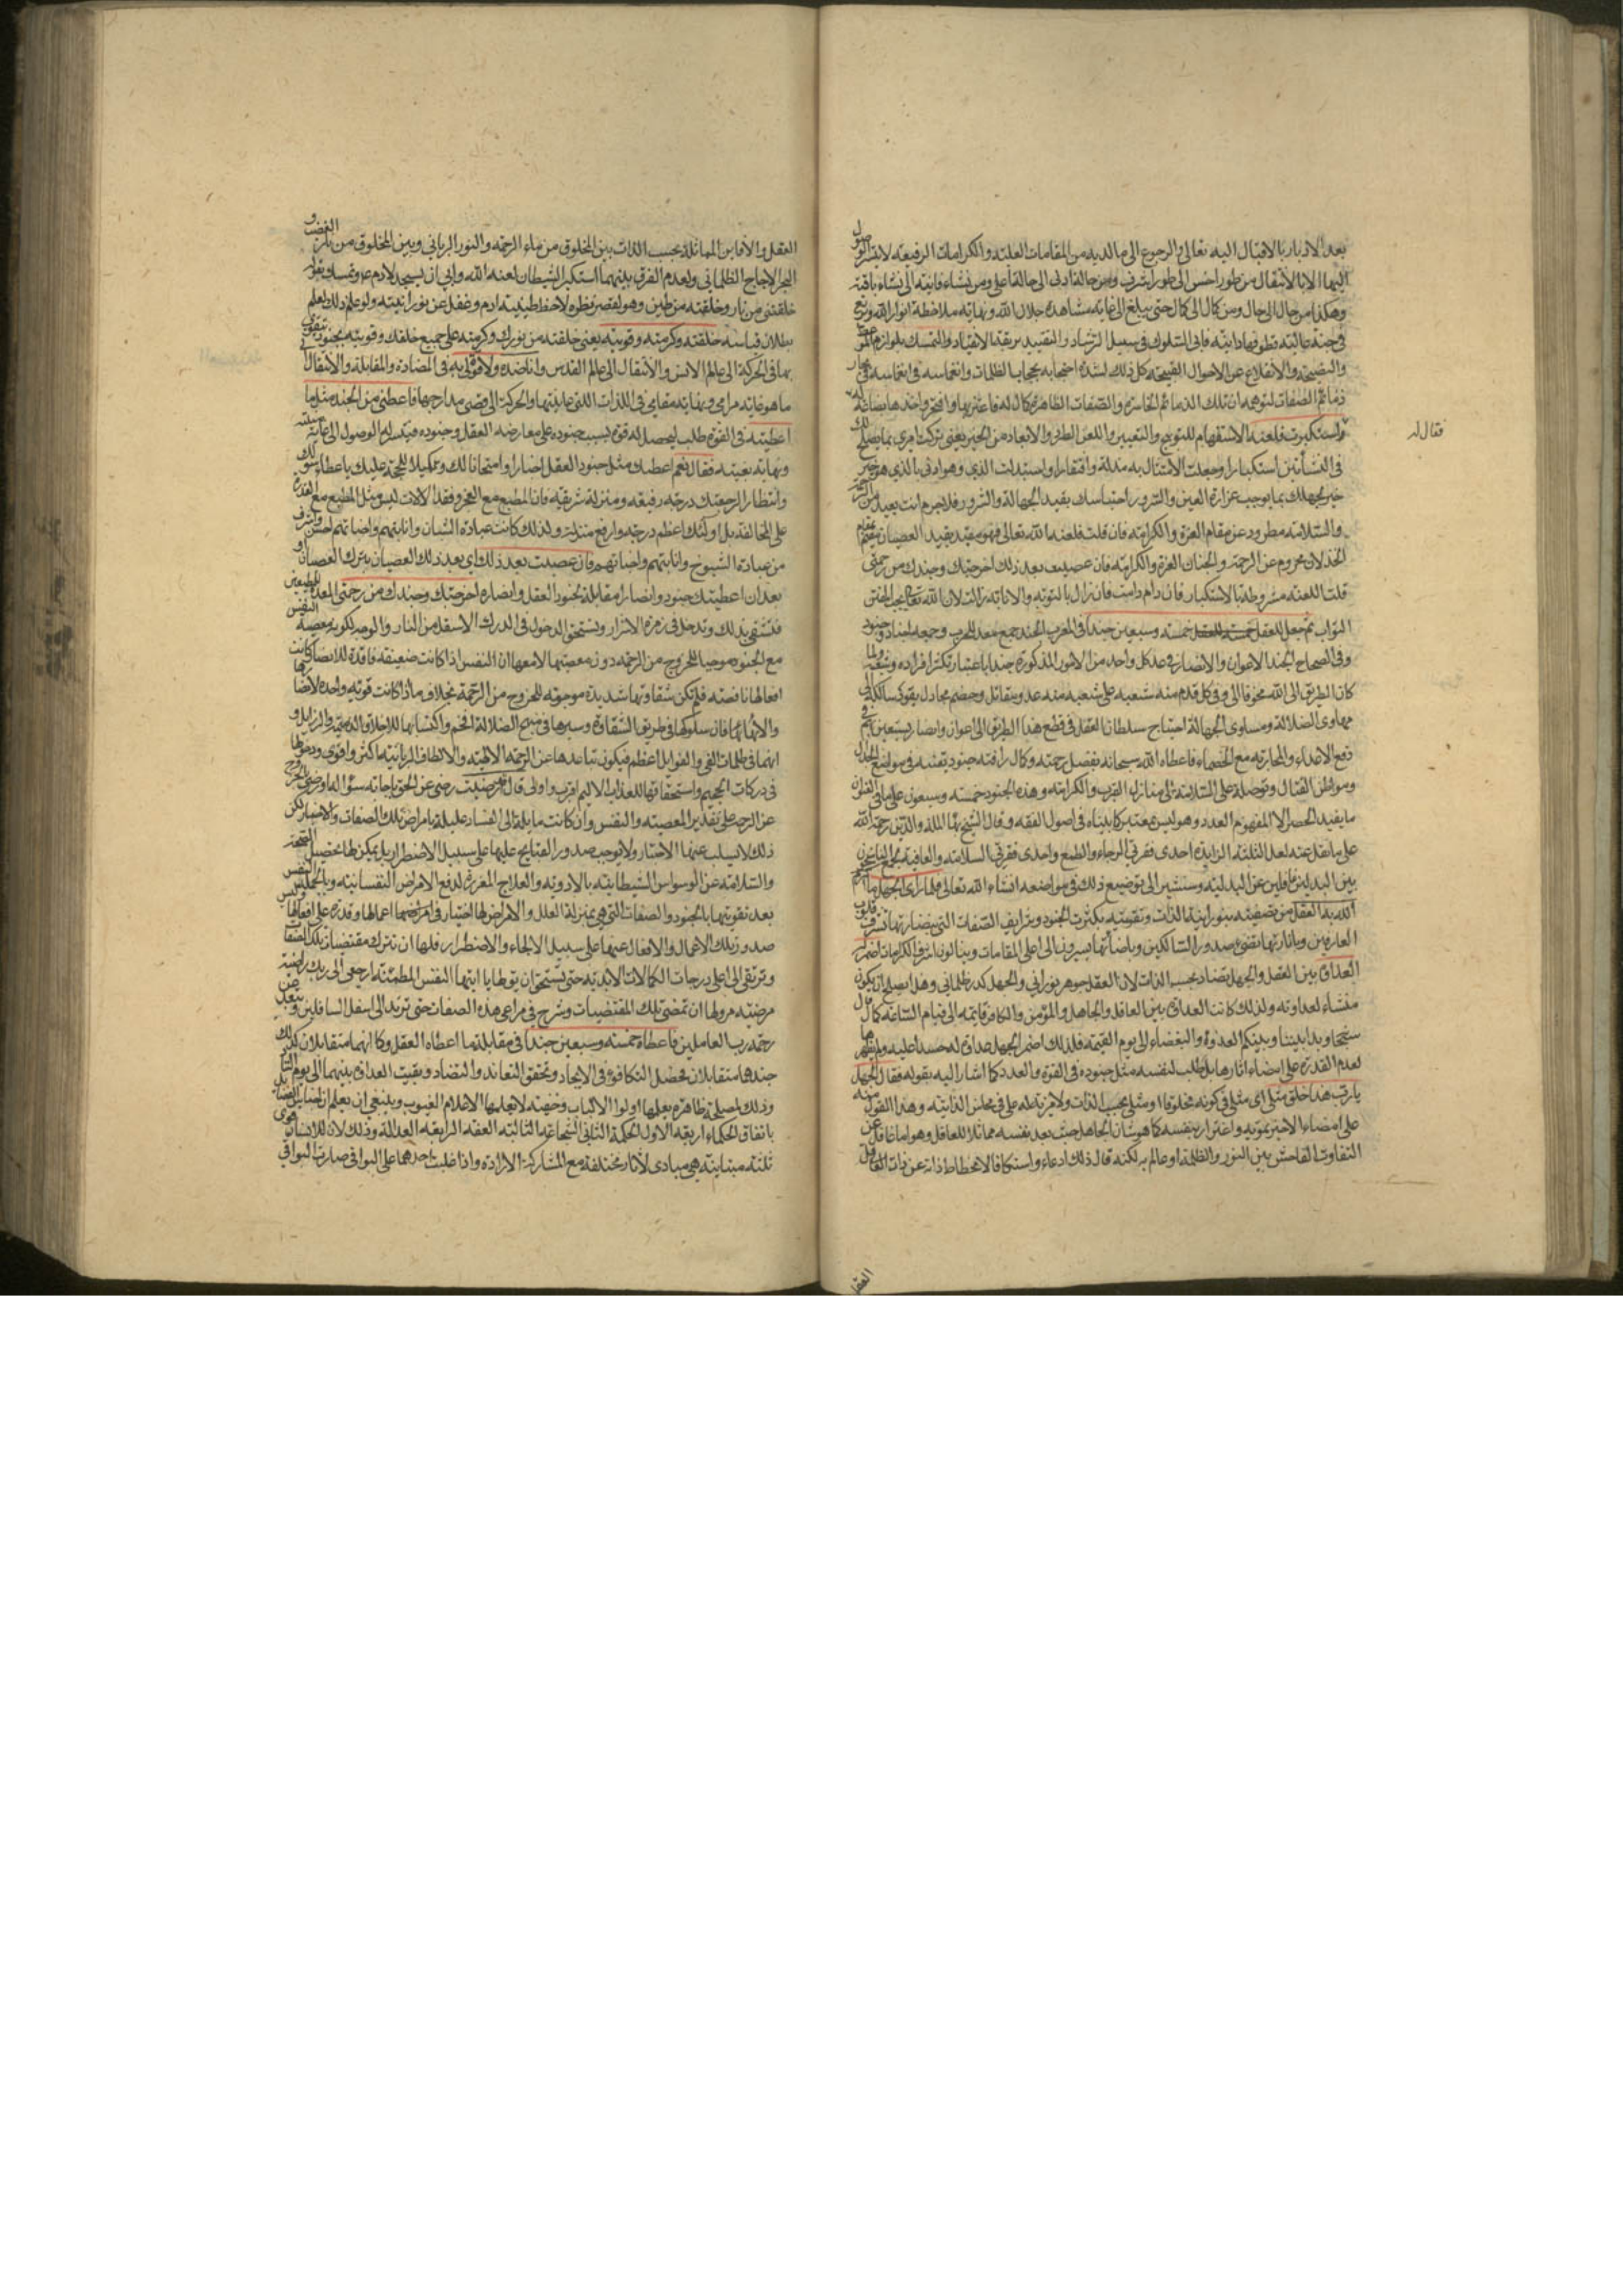 بعد الادبار بالاقبال اليه تعالى والرجوع الى ما لديه من المقامات العلية والكرامات الرفيعة لا يتيسر الوصول
اليها الا بالانتقال من طور اخس الى طور اشرف ومن حالة ادنى الى حالة اعلى ومن نشاة فانية الى نشاة باقية
وهكذا من حال الى حال ومن كمال الى كمال حتى يبلغ الى غاية مشاهدة جلال الله ونهاية ملاحظة انوار الله
في جنة عالية قطوفها دانية فابى السلوك في سبيل الرشاد والتقييد بربقة الانقياد والتمسك بلوازم
والنصيحة والانقلاع عن الاحوال القبيحة كل ذلك لشدة احتجابه بحجاب الظلمات وانغماسه في
ذمائم الصفات لتوهمه ان تلك الذمائم الخاسرة والصفات الظاهرة كمال له فاغتر بها وافتخر واخذها بضاعة
فقال له
استكبرت فلعنه الاستفهام للتوبيخ والتعيير واللعن الطرد والابعاد من الخير يعني تركت امري بما يصلح لك
في النشأتين استكبارا وجعلت الامتثال به مذلة وافتقارا واستبدلت الذي هو ادنى بالذي هو خير
والسلامة مطرود عن مقام العزة والكرامة فان قلت فلعنه الله تعالى فهو مقيد بقيد العصيان
الخذلان محروم عن الرحمة والجنان
قلت اللعنة مشروطة بالاستكبار فان دام دامت فان زال بالتوبة والانابة زالت لان الله تعالى يحب
التواب ثم جعل للعقل خمسة وسبعين جندا في المغرب الجند جمع معد للحرب وجمعه اجناد وجنود
وفي الصحاح الجند الاعوان والانصار في عد كل واحد من الامور المذكورة جندا باعتبار تكثر افراده وشعبه ولما
كان الطريق الى الله مخوفا الى وفي كل قدم منه شعبة على شعبة منه عدو يقاتل وخصم يجادل
مهاوى الضلالة ومساوى الجهالة احتاج سلطان العقل في قطع هذا الطريق الى اعوان وانصار يستعين بهم في
دفع الاعداء والمحاربة مع الخصماء فاعطاه الله سبحانه بفضل رحمته وكمال رافته جنودا
ومواطن القتال وتوصله على السلامة الى منازل القرب والكرامة وهذه الجنود خمسة وسبعون على ما في
ما يفيد الحصر الا المفهوم العدد وهو ليس بمعتبر كما بيناه في اصول الفقه وقال الشيخ بهاء الملة والدين رحمه الله
على ما نقل عنه لعل الثلثة الزايدة احدى فقرتي الرجاء والطمع واحدى فقرتي السلامة والعافية
بين البدلين غافلين عن البدلية وسنشير الى توضيح ذلك في مواضعه انشاء الله تعالى فلما راى الجهل ما اكرم
الله به العقل من تصفيته بنورانية الذات وتقويته بكثرة الجنود وشرايف الصفات التي بنضارتها تشرق قلوب
العارفين وباثارتها يقضى صدور السالكين وباضائتها يسيرون الى اعلى المقامات وينالون اشرف الكرامات اضمر له
العداوة بين العقل والجهل تضاد بحسب الذات لان العقل جوهر نوراني والجهل كدر ظلماني وهذا يصلح ان يكون
منشاء لعداوته ولذلك كانت العداوة بين العاقل والجاهل والمؤمن والكافر قايمة الى قيام الساعة كما قال
سبحانه وبدا بيننا وبينكم العداوة والبغضاء الى يوم القيمة فلذلك اضمر الجهل عداوة له حسدا عليه
لعدم القدرة على امضاء اثارها بل طلب لنفسه مثل جنوده في القوة والعدد كما اشار اليه بقوله فقال الجهل
يا رب هذا خلق مثلي اى مثلي في كونه مخلوقا او مثلي بحسب الذات ولا مزية له على في محاسن الذاتية وهذا القول منه
على امضاء الامر تمويه واغترار بنفسه كما هو شان الجاهل حيث يعد نفسه مماثلا للعاقل وهو اما غافل عن
التفاوت الفاحش بين النور والظلمة او عالم به لكنه قال ذلك ادعاء واستنكافا لانحطاط ذاته عن ذات العقل
العقل
العقل والافاين المماثلة بحسب الذات بين المخلوق من ماء الرحمة والنور الرباني وبين المخلوق من
البحر الاجاج الظلماني ولعدم الفرق بينهما استكبر الشيطان لعنه الله وابى ان يسجد لادم وتمسك بقوله
خلقتني من نار وخلقته من طين وهو لقصر نظره لاحظ طينية ادم وغفل عن نورانيته ولو علم ذلك لعلم
بطلان قياسه خلقته وكرمته وقويته يعني خلقته من نورك وكرمته على جميع خلقك وقويته بجنود يتقوى
بها في الحركة الى عالم الانس والانتقال الى عالم القدس وانا ضده ولا قوة لي به في المضادة والمقابلة والانتقال الى
ما هو غاية مرامي ونهاية مقامي في اللذات والحركة الى اقصى مدارجها فاعطني من الجند مثل ما
اعطيته في القوة طلب ليحصل له قوة بسبب جنوده على معارضة العقل وجنوده فيتيسر له الوصول الى غاية
ونهاية بغيته فقال نعم اعطيك مثل جنود العقل اضرارا وامتحانا لك وتكميلا للحجة عليك
وانتظارا لرجعتك درجة رفيعة ومنزلة شريفة فان المطيع مع العجز وفقد الالات ليس مثل المطيع مع القدرة
على المخالفة بل اولئك اعظم درجة وارفع منزلة ولذلك كانت عبادة الشبان وانابتهم واخباتهم احسن واشرف
من عبادة الشيوخ وانابتهم واخباتهم فان عصيت بعد ذلك اي بعد ذلك العصيان بترك العصيان
بعد ان اعطيتك جنودا وانصارا مقابلة لجنود العقل وانصاره اخرجتك وجندك من رحمتي
فتشقى بذلك وتدخل في زمرة الاشرار وتستحق الدخول في الدرك الاسفل من النار والوجه لكون معصية النفس
مع الجنود موجبا للخروج من الرحمة دون معصيتها لامعها ان النفس اذا كانت ضعيفة فاقدة للانصار كانت
افعالها ناقصة فلم تكن شقاوتها شديدة موجبة للخروج من الرحمة بخلاف ما اذا كانت قوية واجدة
فان سلوكها في طريق الشقاوة وسيرها في منهج الضلالة اتم واكتسابها للاخلاق الذميمة والرذايل
في ظلمات الغي والغواية اعظم فيكون تباعدها عن الرحمة الالهية والالطاف الربانية اكثر واقوى ودخولها
في دركات الجحيم واستحقاقها للعذاب الاليم اقرب واولى قال قد رضيت رضى عن الحق باجابة سؤاله
عن الرحمة على تقدير المعصية والنفس وان كانت مايلة الى الفساد عليلة بامراض تلك الصفات والاخبار لكن
ذلك لا يسلب عنها الاختيار ولا يوجب صدور القبايح عليها على سبيل الاضطرار بل يمكن لها تحصيل الصحة
والسلامة عن الوسواس الشيطانية بالادوية والعلاج المقررة لدفع الامراض النفسانية وبالجملة النفس
بعد تقويتها بالجنود والصفات التي هي بمنزلة العلل والامراض لها اختيار في اعمالها وقدرة على افعالها وليس
صدور تلك الاعمال والافعال عنها على سبيل الالجاء والاضطرار فلها ان تترك مقتضيات تلك الصفات
وترتقى الى اعلى درجات الكمالات الابدية حتى تستحق ان يق لها يا ايتها النفس المطمئنة ارجعي الى ربك راضية
مرضية ولها ان تمضى تلك المقتضيات وتسرح في مراعي هذه الصفات حتى ترتد الى اسفل السافلين وتبعد عن
رحمة رب العاملين فاعطاه خمسة وسبعين جندا في مقابلة ما اعطاه العقل وكما انهما متقابلان كذلك
جندهما متقابلان فحصل التكافؤ في الايجاد وتحقق التعاند والتضاد وبقيت العداوة بينهما الى يوم التناد
وذلك لمصلحة ظاهرة يعلمها اولوا الالباب وخفية لا يعلمها الا علام الغيوب وينبغي ان يعلم ان
باتفاق الحكماء اربعة الاول الحكمة الثاني الشجاعة الثالثة العفة الرابعة العدالة وذلك لان للانسان قوى
ثلثة متباينة هي مبادى لاثار مختلفة مع المشاركة الارادة واذا غلبت احدهما على البواقي صارت البواقي